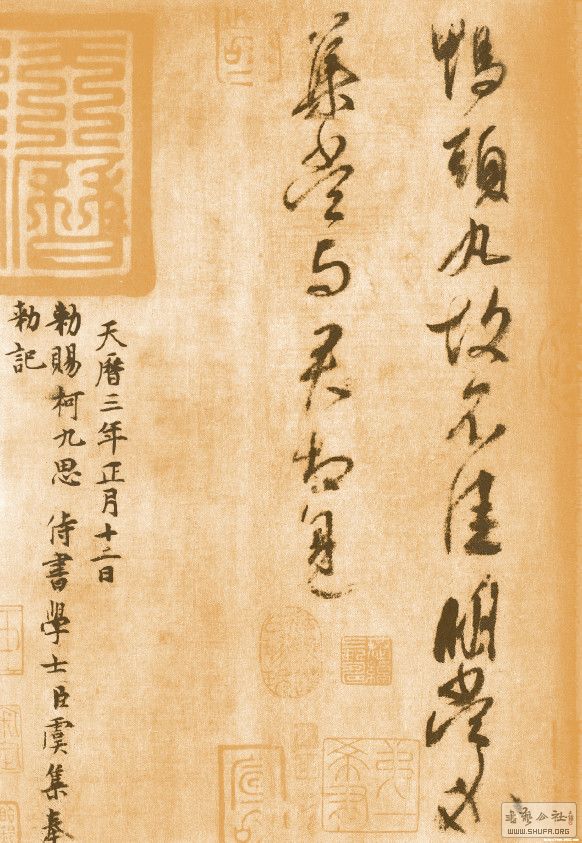 鴨頭丸故不佳明當必
集當與君相見
天曆三年正月十二日
勑賜柯九思 侍書學士臣虞集奉
勑記
天曆
書藝公社
WWW.SHUFA.ORG